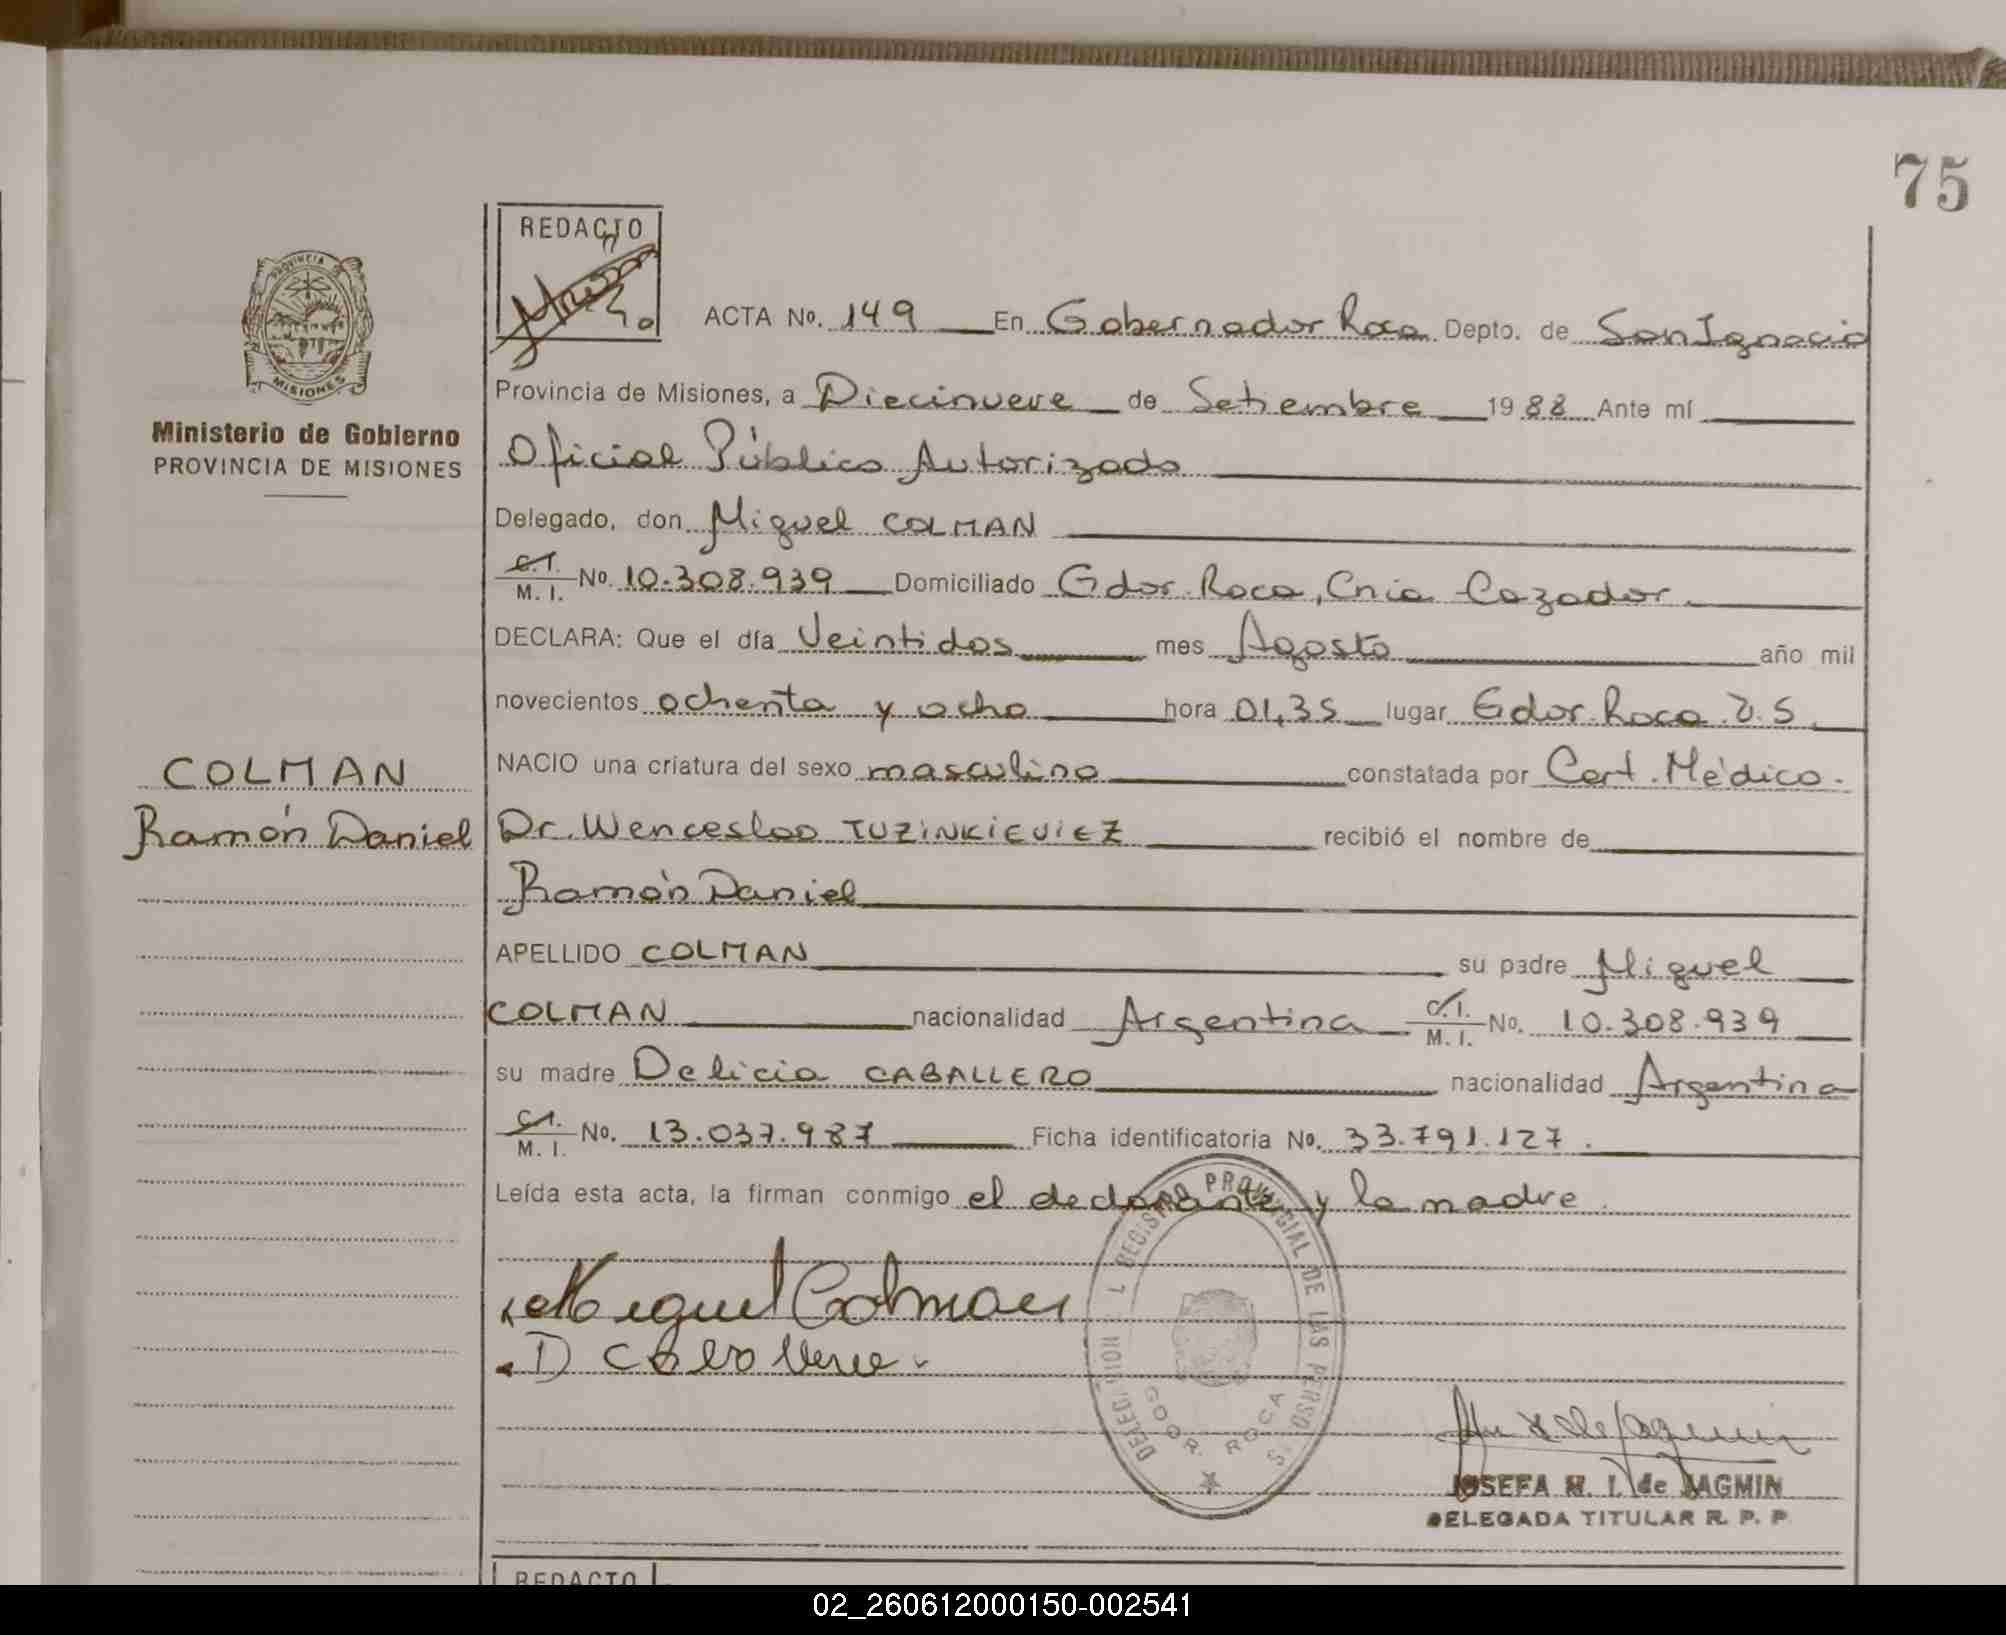 75
REDACTO
PROVINCIA
MISIONES
Ministerio de Gobierno
PROVINCIA DE MISIONES
ACTA No. 149 En Gobernador Roca Depto. de San Ignacio
Provincia de Misiones, a Diecinueve de Setiembre 1988 Ante mí
Oficial Público Autorizado
Delegado, don Miguel COLMAN
C.I. M. I. No. 10.308.939 Domiciliado Gdor. Roca, Cnia Cazador.
DECLARA: Que el día Veintidos mes Agosto año mil
novecientos ochenta y ocho hora 01,35 lugar Gdor. Roca. J. S.
NACIO una criatura del sexo masculino constatada por Cert. Médico.
COLMAN
Ramón Daniel
Dr. Wenceslao TUZINKIEVIEZ recibió el nombre de
Ramón Daniel
APELLIDO COLMAN su padre Miguel
COLMAN nacionalidad Argentina C.I. M. I. No. 10.308.939
su madre Delicia CABALLERO nacionalidad Argentina
C.I. M. I. No. 13.037.987 Ficha identificatoria No. 33.791.127.
Leída esta acta, la firman conmigo el declarante y la madre.
Miguel Colman
D Caballero
REGISTRO PROVINCIAL DE LAS PERSONAS
GDOR. ROCA
JOSEFA M. I. de JAGMIN
DELEGADA TITULAR R. P. P
REDACTO
02_260612000150-002541